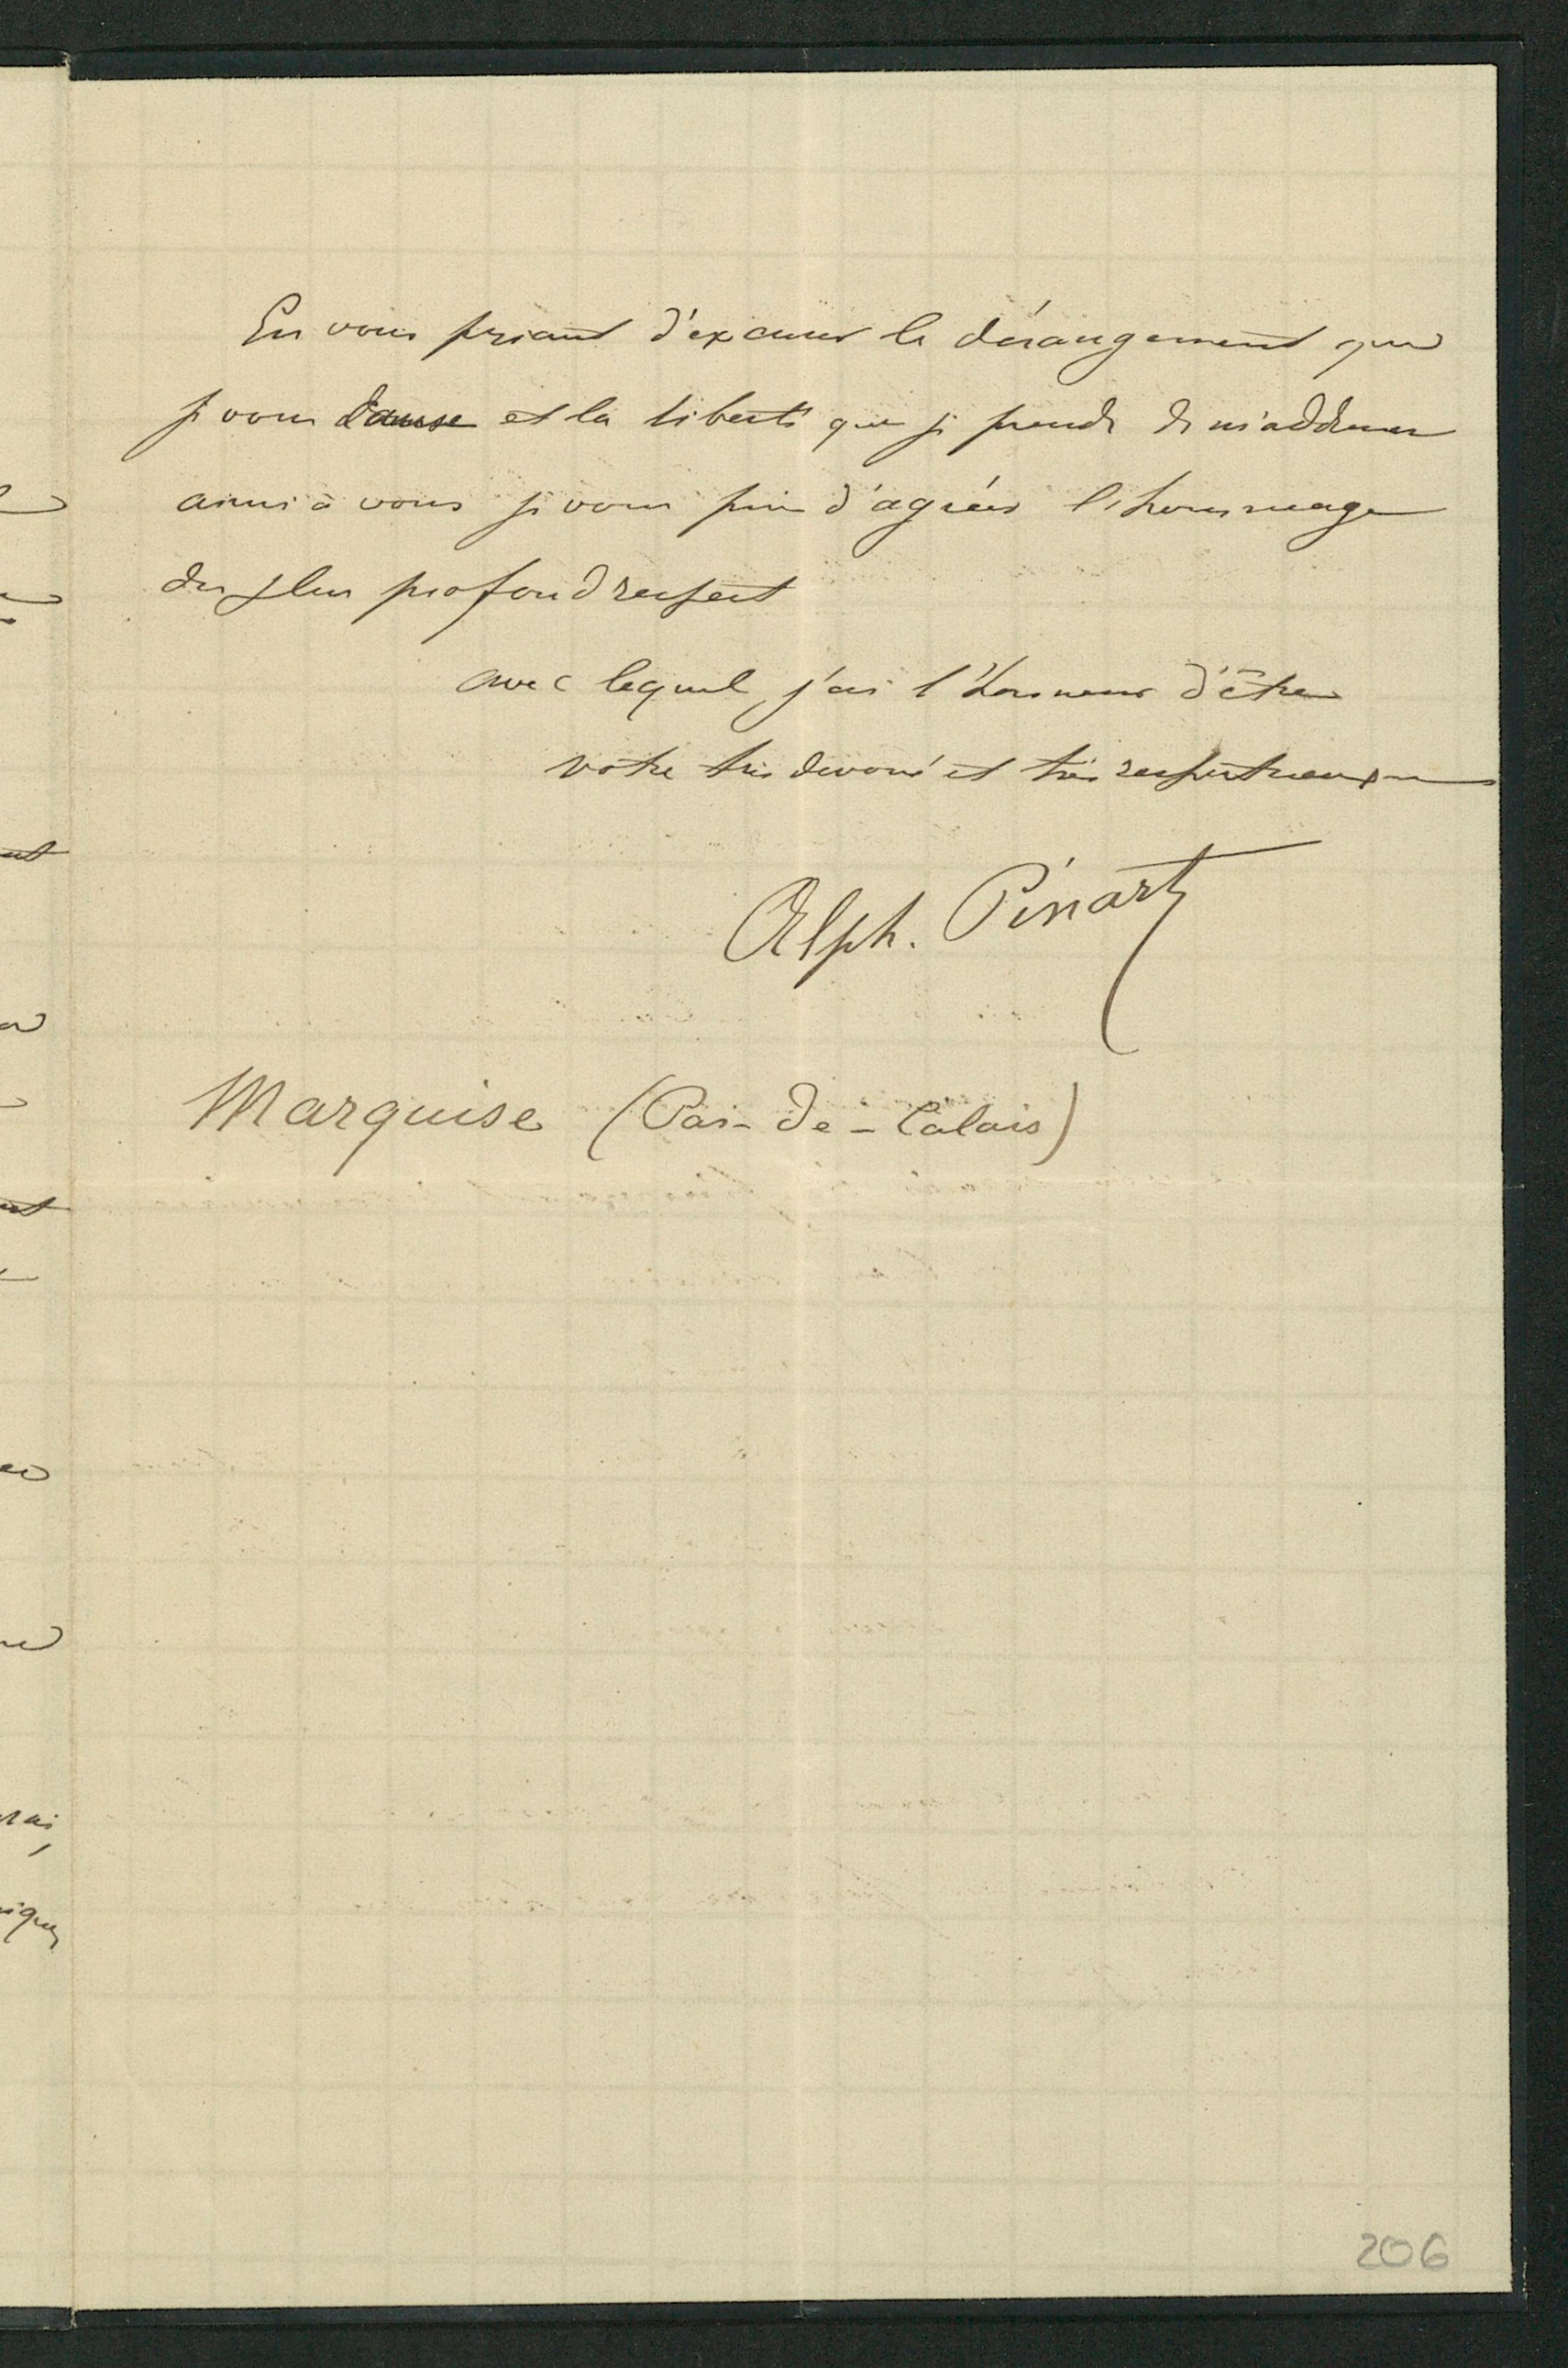 En vous priant d'excuser le dérangement que
je vous cause et la liberté que je prends de m'addresser
ainsi à vous je vous prie d'agréer l'hommage
du plus profond respect
avec lequel j'ai l'honneur d'être
votre très dévoué et très respectueux
Alph. Pinart
Marquise (Pas-de-Calais)
206